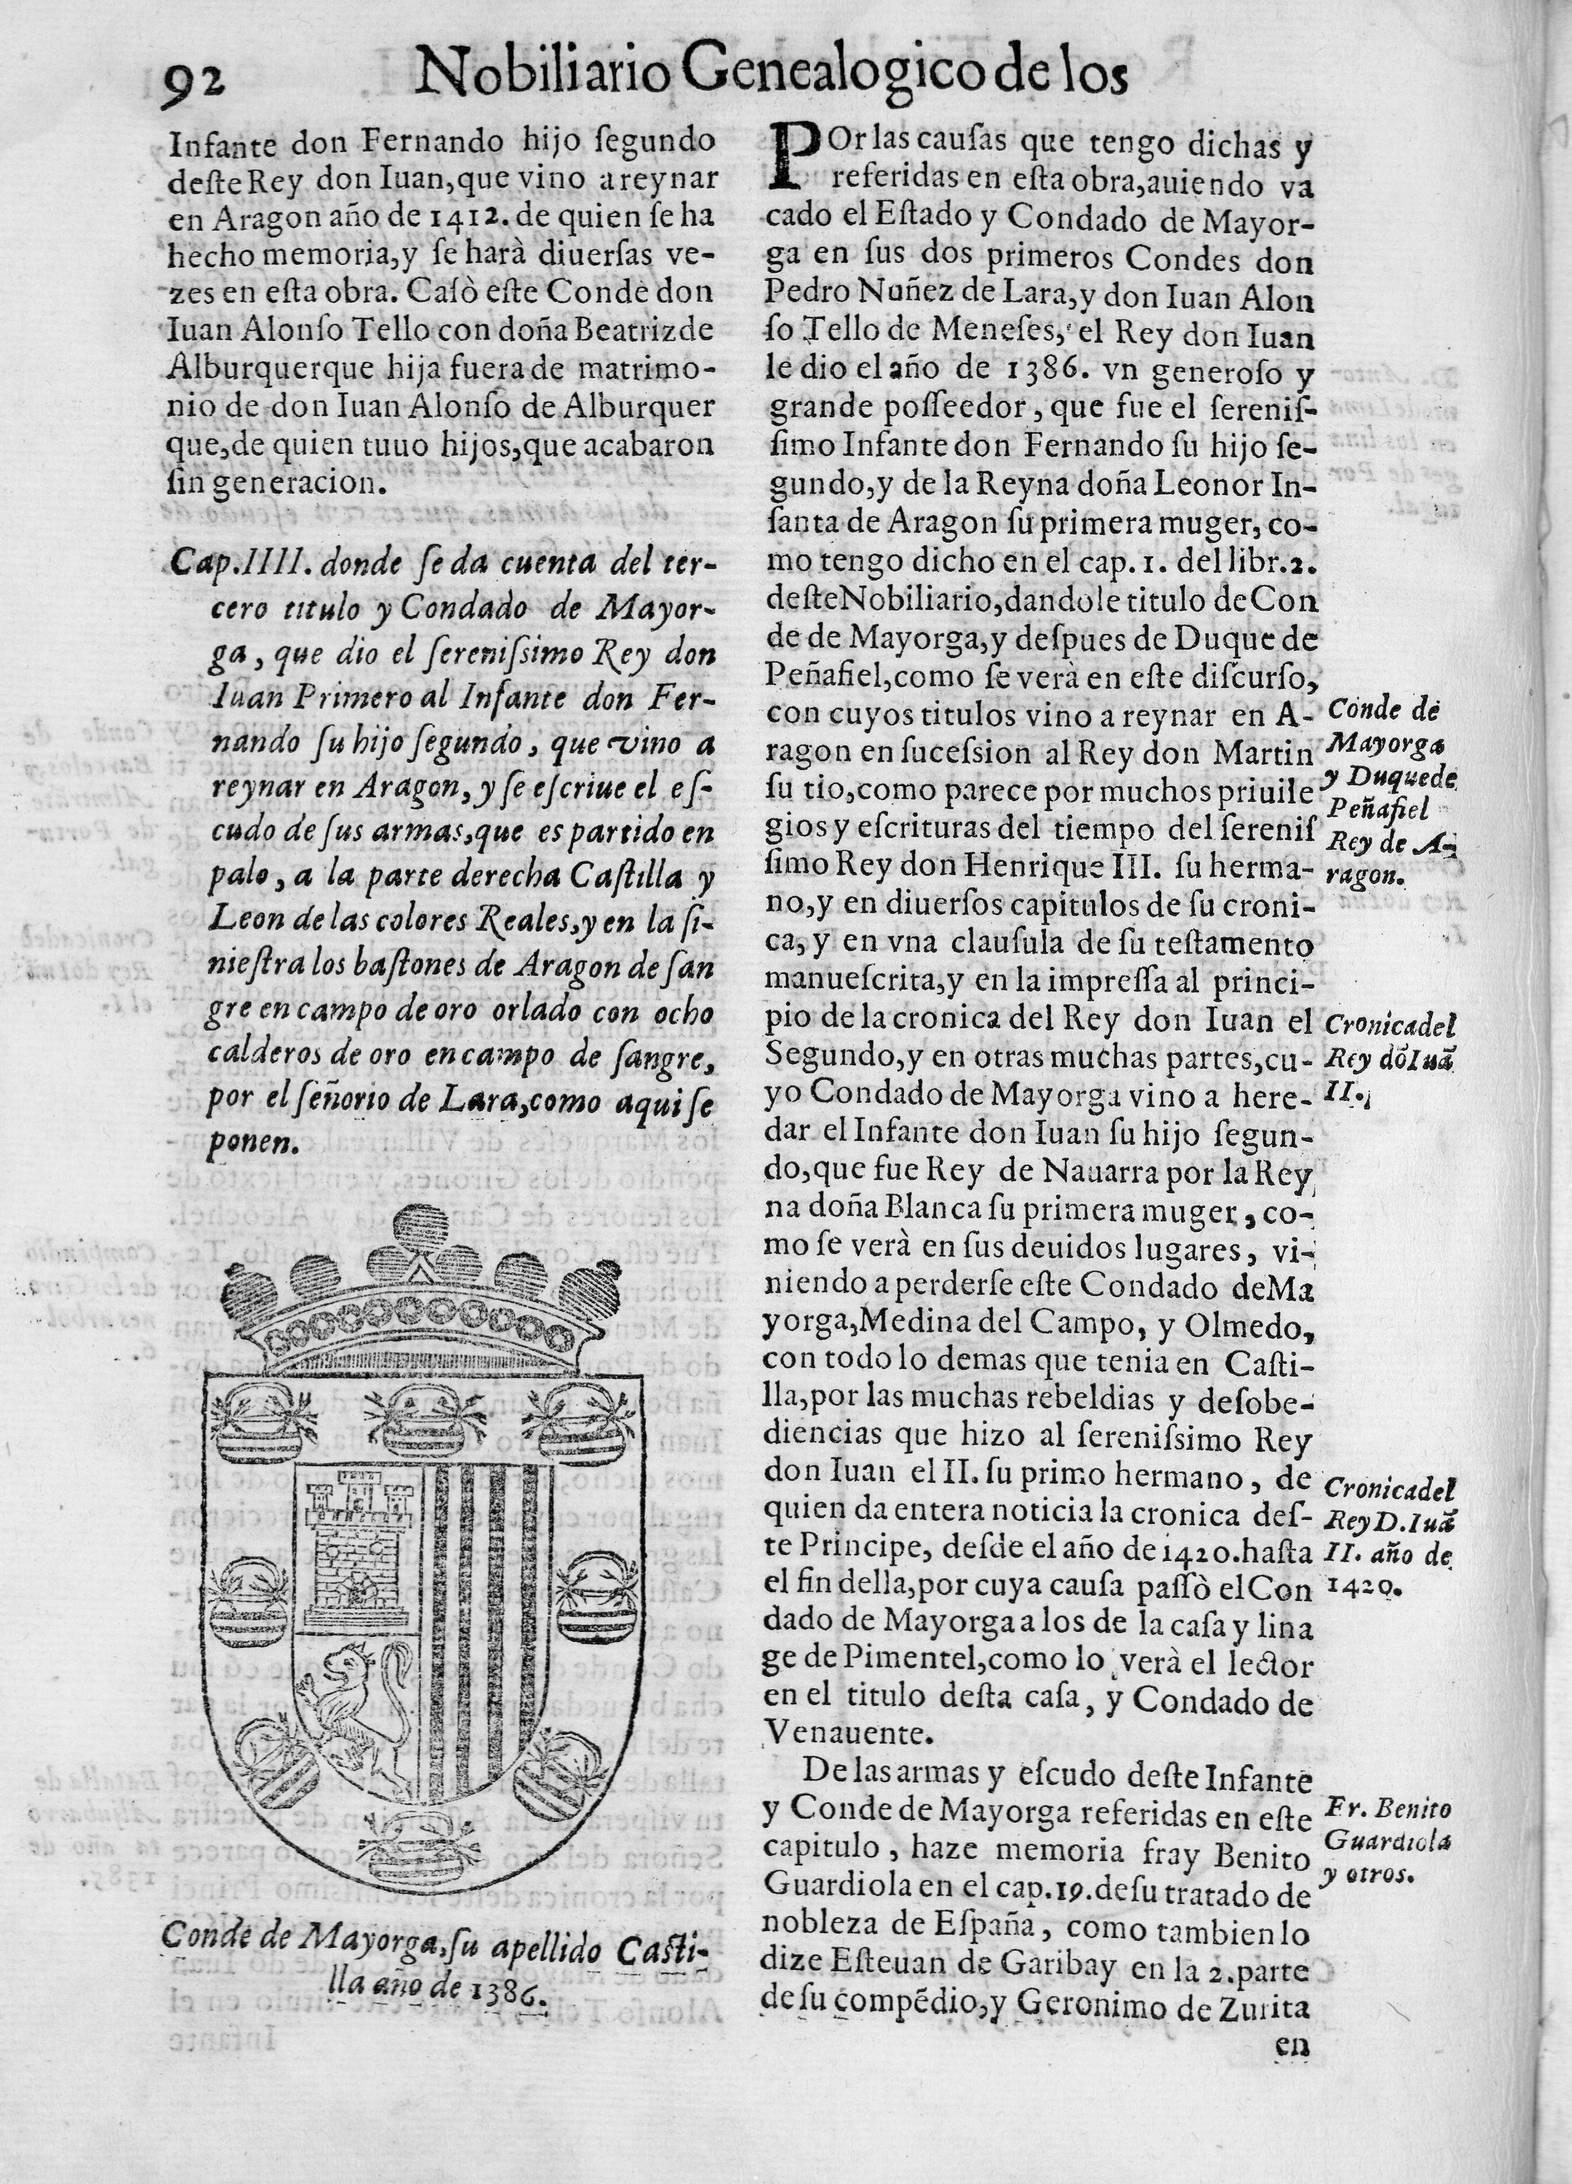 92
Nobiliario Genealogico de los
Infante don Fernando hijo ſegundo
deſte Rey don Iuan, que vino a reynar
en Aragon año de 1412. de quien ſe ha
hecho memoria, y ſe harà diuerſas ve-
zes en eſta obra. Caſò eſte Conde don
Iuan Alonſo Tello con doña Beatriz de
Alburquerque hija fuera de matrimo-
nio de don Iuan Alonſo de Alburquer
que, de quien tuuo hijos, que acabaron
ſin generacion.
Cap. IIII. donde ſe da cuenta del ter-
cero titulo y Condado de Mayor-
ga, que dio el ſereniſsimo Rey don
Iuan Primero al Infante don Fer-
nando ſu hijo ſegundo, que vino a
reynar en Aragon, y ſe eſcriue el eſ-
cudo de ſus armas, que es partido en
palo, a la parte derecha Caſtilla y
Leon de las colores Reales, y en la ſi-
nieſtra los baſtones de Aragon de ſan
gre en campo de oro orlado con ocho
calderos de oro en campo de ſangre,
por el ſeñorio de Lara, como aqui ſe
ponen.
Conde de Mayorga, ſu apellido Caſti-
lla año de 1386.
POr las cauſas que tengo dichas y
referidas en eſta obra, auiendo va
cado el Eſtado y Condado de Mayor-
ga en ſus dos primeros Condes don
Pedro Nuñez de Lara, y don Iuan Alon
ſo Tello de Meneſes, el Rey don Iuan
le dio el año de 1386. vn generoſo y
grande poſſeedor, que fue el ſereniſ-
ſimo Infante don Fernando ſu hijo ſe-
gundo, y de la Reyna doña Leonor In-
fanta de Aragon ſu primera muger, co-
mo tengo dicho en el cap. 1. del libr. 2.
deſte Nobiliario, dandole titulo de Con
de de Mayorga, y deſpues de Duque de
Peñafiel, como ſe verà en eſte diſcurſo,
con cuyos titulos vino a reynar en A-
ragon en ſuceſsion al Rey don Martin
ſu tio, como parece por muchos priuile
gios y eſcrituras del tiempo del ſereniſ
ſimo Rey don Henrique III. ſu herma-
no, y en diuerſos capitulos de ſu croni-
ca, y en vna clauſula de ſu teſtamento
manueſcrita, y en la impreſſa al princi-
pio de la cronica del Rey don Iuan el
Segundo, y en otras muchas partes, cu-
yo Condado de Mayorga vino a here-
dar el Infante don Iuan ſu hijo ſegun-
do, que fue Rey de Nauarra por la Rey
na doña Blanca ſu primera muger, co-
mo ſe verà en ſus deuidos lugares, vi-
niendo a perderſe eſte Condado de Ma
yorga, Medina del Campo, y Olmedo,
con todo lo demas que tenia en Caſti-
lla, por las muchas rebeldias y deſobe-
diencias que hizo al ſereniſsimo Rey
don Iuan el II. ſu primo hermano, de
quien da entera noticia la cronica deſ-
te Principe, deſde el año de 1420. haſta
el fin della, por cuya cauſa paſſò el Con
dado de Mayorga a los de la caſa y lina
ge de Pimentel, como lo verà el lector
en el titulo deſta caſa, y Condado de
Venauente.
De las armas y eſcudo deſte Infante
y Conde de Mayorga referidas en eſte
capitulo, haze memoria fray Benito
Guardiola en el cap. 19. de ſu tratado de
nobleza de Eſpaña, como tambien lo
dize Eſteuan de Garibay en la 2. parte
de ſu compẽdio, y Geronimo de Zurita
en
Conde de
Mayorga
y Duque de
Peñafiel
Rey de A-
ragon.
Cronica del
Rey dõ Iuã
II.
Cronica del
Rey D. Iuã
II. año de
1420.
Fr. Benito
Guardiola
y otros.